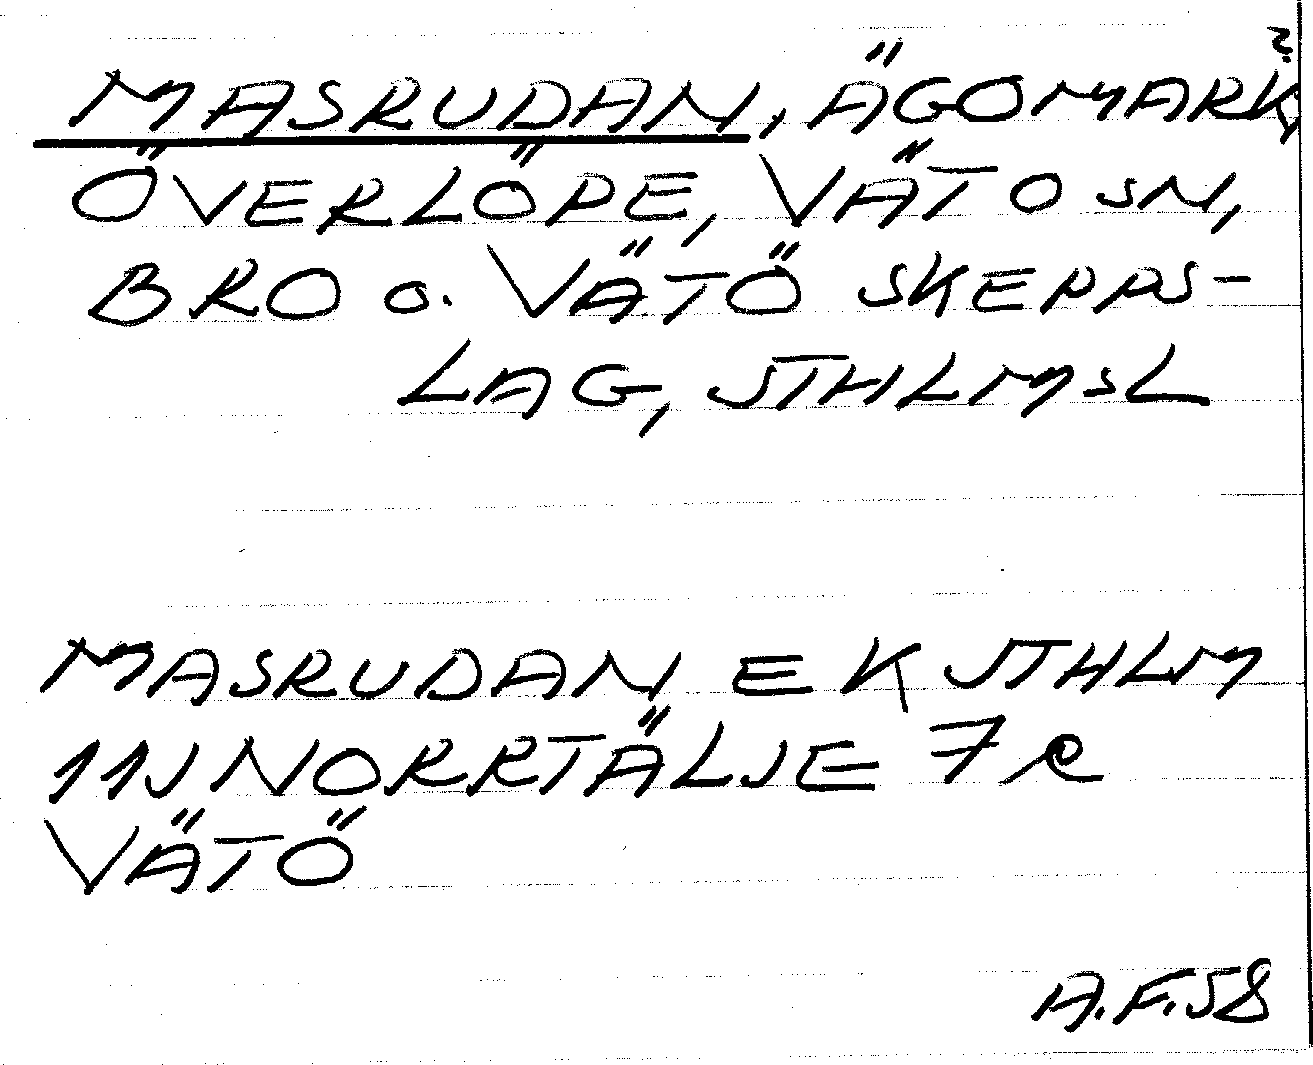 MASRUDAN, ÄGOMARK,?
ÖVERLÖPE, VÄTO SN,
BRO o. VÄTÖ SKEPPS-
LAG, STHLMSL
MASRUDAN EK STHLM
11J NORRTÄLJE 7 e
VÄTÖ
A.F.58